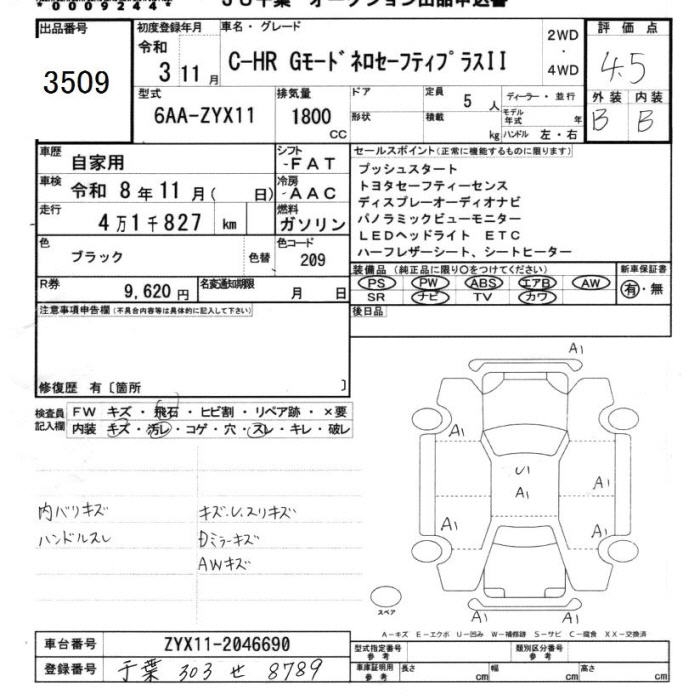 出品番号
3509
初度登録年月
令和
3 11月
車名・グレード
C-HR GモードネロセーフティプラスII
2WD
・
4WD
評価点
4.5
外装 内装
B B
型式
6AA-ZYX11
排気量
1800
cc
ドア
形状
定員 5 人
積載 kg
ディーラー・並行
モデル年式 年
ハンドル 左・右
車歴 自家用
シフト
-FAT
車検 令和 8年11月( 日)
冷房
-AAC
走行 4万1千827 km
燃料
ガソリン
色 ブラック 色替
色コード
209
R券 9,620円
名変通知期限 月 日
セールスポイント(正常に機能するものに限ります)
プッシュスタート
トヨタセーフティーセンス
ディスプレーオーディオナビ
パノラミックビューモニター
LEDヘッドライト ETC
ハーフレザーシート、シートヒーター
装備品(純正品に限り○をつけてください)
PS PW ABS エアB AW
SR ナビ TV カワ
新車保証書
有・無
後日品
注意事項申告欄(不具合内容等は具体的に記入して下さい)
修復歴 有〔箇所 〕
検査員
記入欄
FW キズ・飛石・ヒビ割・リペア跡・×要
内装 キズ・汚レ・コゲ・穴・スレ・キレ・破レ
内バリキズ
ハンドルスレ
キズ.U.スリキズ
Dミラーキズ
AWキズ
A1
A1
U1
A1
A1
A1
A1
A1
スペア
A-キズ E-エクボ U-凹み W-補修跡 S-サビ C-腐食 XX-交換済
車台番号 ZYX11-2046690
登録番号 千葉 303 せ 8789
型式指定番号
参考
類別区分番号
参考
車庫証明用
参考
長さ cm
幅 cm
高さ cm